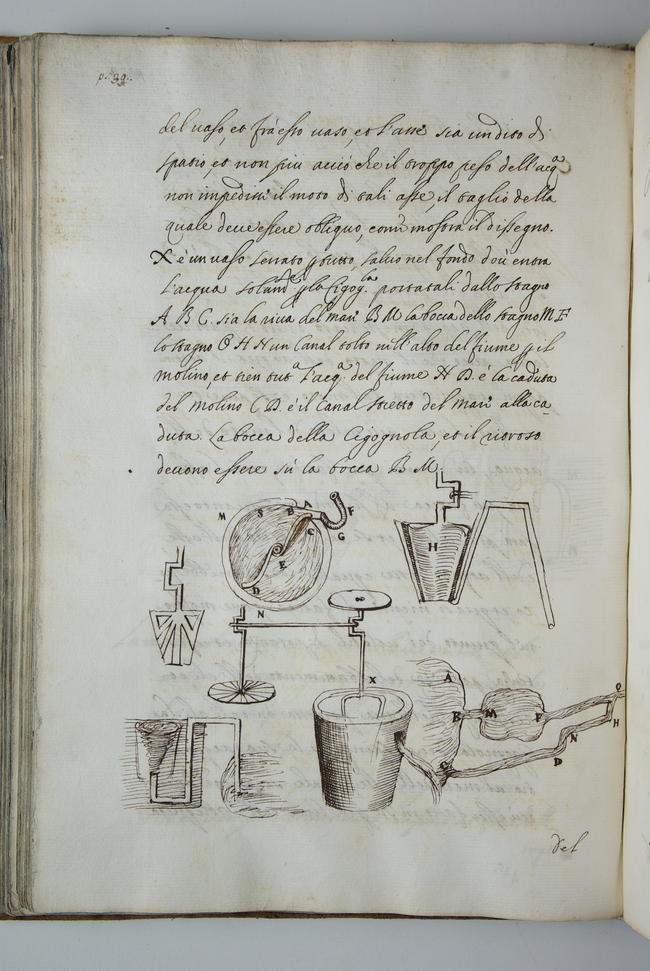 p. 39.
del uaso, et frà esso uaso, et l'asse sia un dito di
spatio, et non piu acciò che il troppo peso dell'acqᵃ
non impedisca il moto di tali asse, il taglio della
quale deue essere obliquo, come mostra il dissegno.
X è un uaso serrato p tutto, saluo nel fondo d'où entra
l'acqua solamᵗᵉ p la Cigogˡᵃ portatali dallo stagno
A B C. sia la riua del mare B M la bocca dello stagno M F
lo stagno O H N un Canal tolto nell'alto del fiume p il
molino, et tien tutᵃ l'acqᵃ del fiume N D. è la caduta
del molino C D. è il Canal stretto del mare alla ca
duta. La bocca della Cigognola, et il riuoso
deuono essere sù la bocca B M.
M S B A F
C G
E
D
N
H
X
A
B M F O
H
N
D
C
del